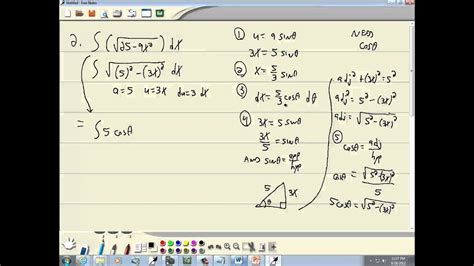 2. ∫ (√25-9x²) dx
∫ √(5)² - (3x)² dx
a=5 u=3x du=3 dx
= ∫ 5 cosθ
① u = a sinθ
3x = 5 sinθ
② x = 5/3 sinθ
③ dx = 5/3 cosθ dθ
④ 3x = 5 sinθ
3x/5 = sinθ
AND sinθ = opp/hyp
5 3x
θ
NEED
cosθ
adj² + (3x)² = 5²
adj² = 5² - (3x)²
adj = √5² - (3x)²
⑤ cosθ = adj/hyp
cosθ = √5² - (3x)²/5
5 cosθ = √5² - (3x)²